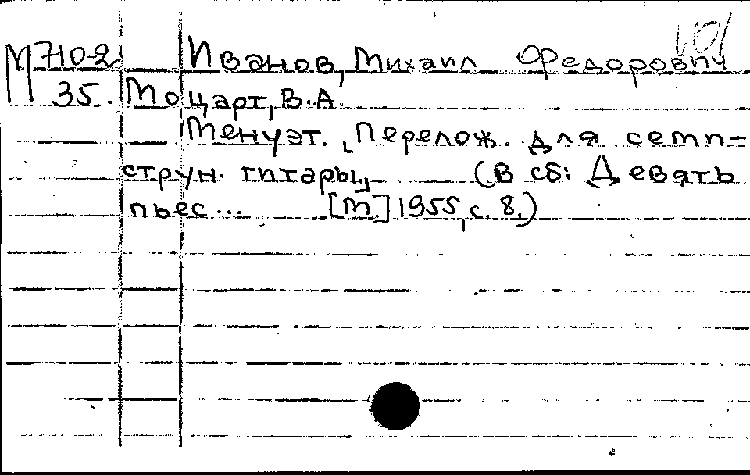 М710-2 Иванов, Михаил Федорович
35. Моцарт, В.А.
Менуэт. Перелож. для семи-
струн. гитары. (В сб: Девять
пьес... [М.] 1955, с. 8.)